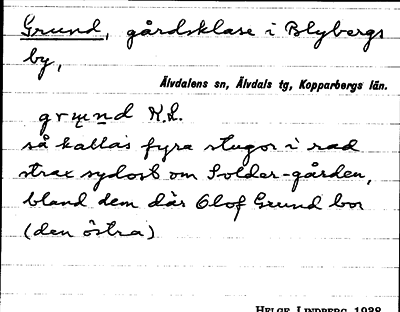 Grund, gårdsklase i Blybergs
by,
Älvdalens sn, Älvdals tg, Kopparbergs län.
grund N.L.
så kallas fyra stugor i rad
strax sydost om Soldar-gården,
bland dem där Olof Grund bor
(den östra)
HELGE LINDBERG 1938